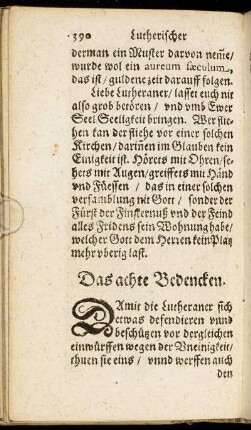 390 Lutherischer
derman ein Muster darvon nem̄e/
wurde wol ein aureum sæculum,
das ist/ guldene zeit darauff folgen.
Liebe Lutheraner/ lasset euch nit
also grob betören/ vnd vmb Ewer
Seel Seeligkeit bringen. Wer flie-
hen kan der fliehe vor einer solchen
Kirchen/ dariñen im Glauben kein
Einigkeit ist. Hörets mit Ohren/ se-
hets mit Augen/ greiffets mit Händ
vnd Füessen/ das in einer solchen
versamblung nit Gott/ sonder der
Fürst der Finsternuß vnd der Feind
alles Fridens sein Wohnung habe/
welcher Gott dem Herren kein Platz
mehr vberig last.
Das achte Bedencken.
DAmit die Lutheraner sich
etwas defendieren vnnd
beschützen vor dergleichen
einwürffen wegen der Vneinigkeit/
thuen sie eins/ vnnd werffen auch
den